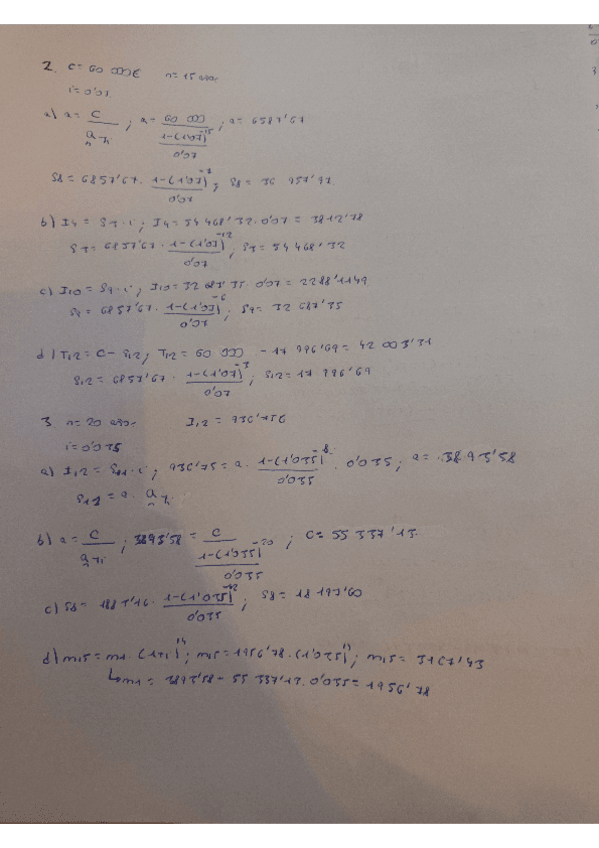 2. C= 60 000€ n= 15 años
i= 0'07
a) a = C / a n⌉i ; a = 60 000 / (1-(1'07)^-15 / 0'07) ; a = 6587'67
S8 = 6857'67 · 1-(1'07)^-7 / 0'07 ; S8 = 36 957'97
b) I4 = S3 · i ; I4 = 54 468'32 · 0'07 = 3812'78
S3 = 6857'67 · 1-(1'07)^-12 / 0'07 ; S3 = 54 468'32
c) I10 = S9 · i ; I10 = 32 687'35 · 0'07 = 2288'1149
S9 = 6857'67 · 1-(1'07)^-6 / 0'07 ; S9 = 32 687'35
d) T12 = C - S12 ; T12 = 60 000 - 17 996'69 = 42 003'31
S12 = 6857'67 · 1-(1'07)^-3 / 0'07 ; S12 = 17 996'69
3. n= 20 años I12 = 936'756
i= 0'035
a) I12 = S11 · i ; 936'75 = a · 1-(1'035)^-8 / 0'035 · 0'035 ; a = 3893'58
S11 = a · a n⌉i
b) a = C / a n⌉i ; 3893'58 = C / (1-(1'035)^-20 / 0'035) ; C = 55 337'13
c) S8 = · 1-(1'035)^-12 / 0'035 ; S8 =
d) m15 = m1 · (1+i)^14 ; m15 = 1956'78 · (1'035)^14 ; m15 = 3167'43
↳ m1 = 3893'58 - 55 337'13 · 0'035 = 1956'78